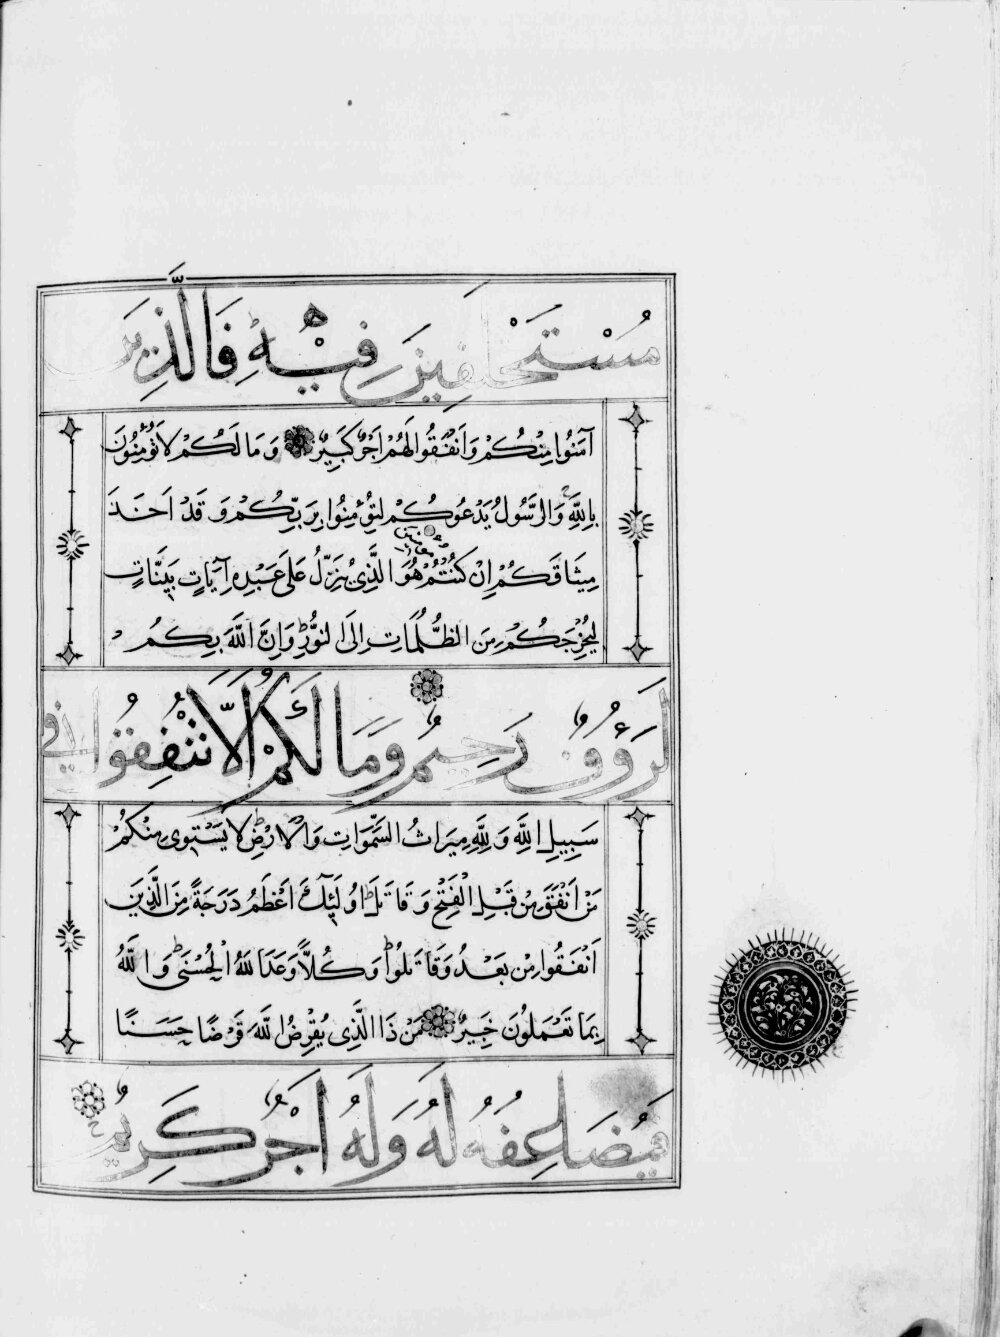 مُسْتَخْلَفِينَ فِيْهِ فَالَّذِينَ
آمَنُوا مِنْكُمْ وَاَنْفَقُوا لَهُمْ اَجْرٌ كَبِيرٌ وَمَا لَكُمْ لَا تُؤْمِنُونَ
بِاللَّهِ وَالرَّسُولُ يَدْعُوكُمْ لِتُؤْمِنُوا بِرَبِّكُمْ وَقَدْ اَخَذَ
مِيثَاقَكُمْ اِنْ كُنْتُمْ مؤمنين هُوَ الَّذِي يُنَزِّلُ عَلَى عَبْدِهِ آيَاتٍ بَيِّنَاتٍ
لِيُخْرِجَكُمْ مِنَ الظُّلُمَاتِ اِلَى النُّورِ وَاِنَّ اللَّهَ بِكُمْ
لَرَؤُفٌ رَحِيمٌ وَمَا لَكُمْ اَلَّا تُنْفِقُوا فِي
سَبِيلِ اللَّهِ وَلِلَّهِ مِيرَاثُ السَّمَوَاتِ وَالْاَرْضِ لَا يَسْتَوِي مِنْكُمْ
مَنْ اَنْفَقَ مِنْ قَبْلِ الْفَتْحِ وَقَاتَلَ اُولَئِكَ اَعْظَمُ دَرَجَةً مِنَ الَّذِينَ
اَنْفَقُوا مِنْ بَعْدُ وَقَاتَلُوا وَكُلًّا وَعَدَ اللَّهُ الْحُسْنَى وَاللَّهُ
بِمَا تَعْمَلُونَ خَبِيرٌ مَنْ ذَا الَّذِي يُقْرِضُ اللَّهَ قَرْضًا حَسَنًا
فَيُضَاعِفُهُ لَهُ وَلَهُ اَجْرٌ كَرِيمٌ